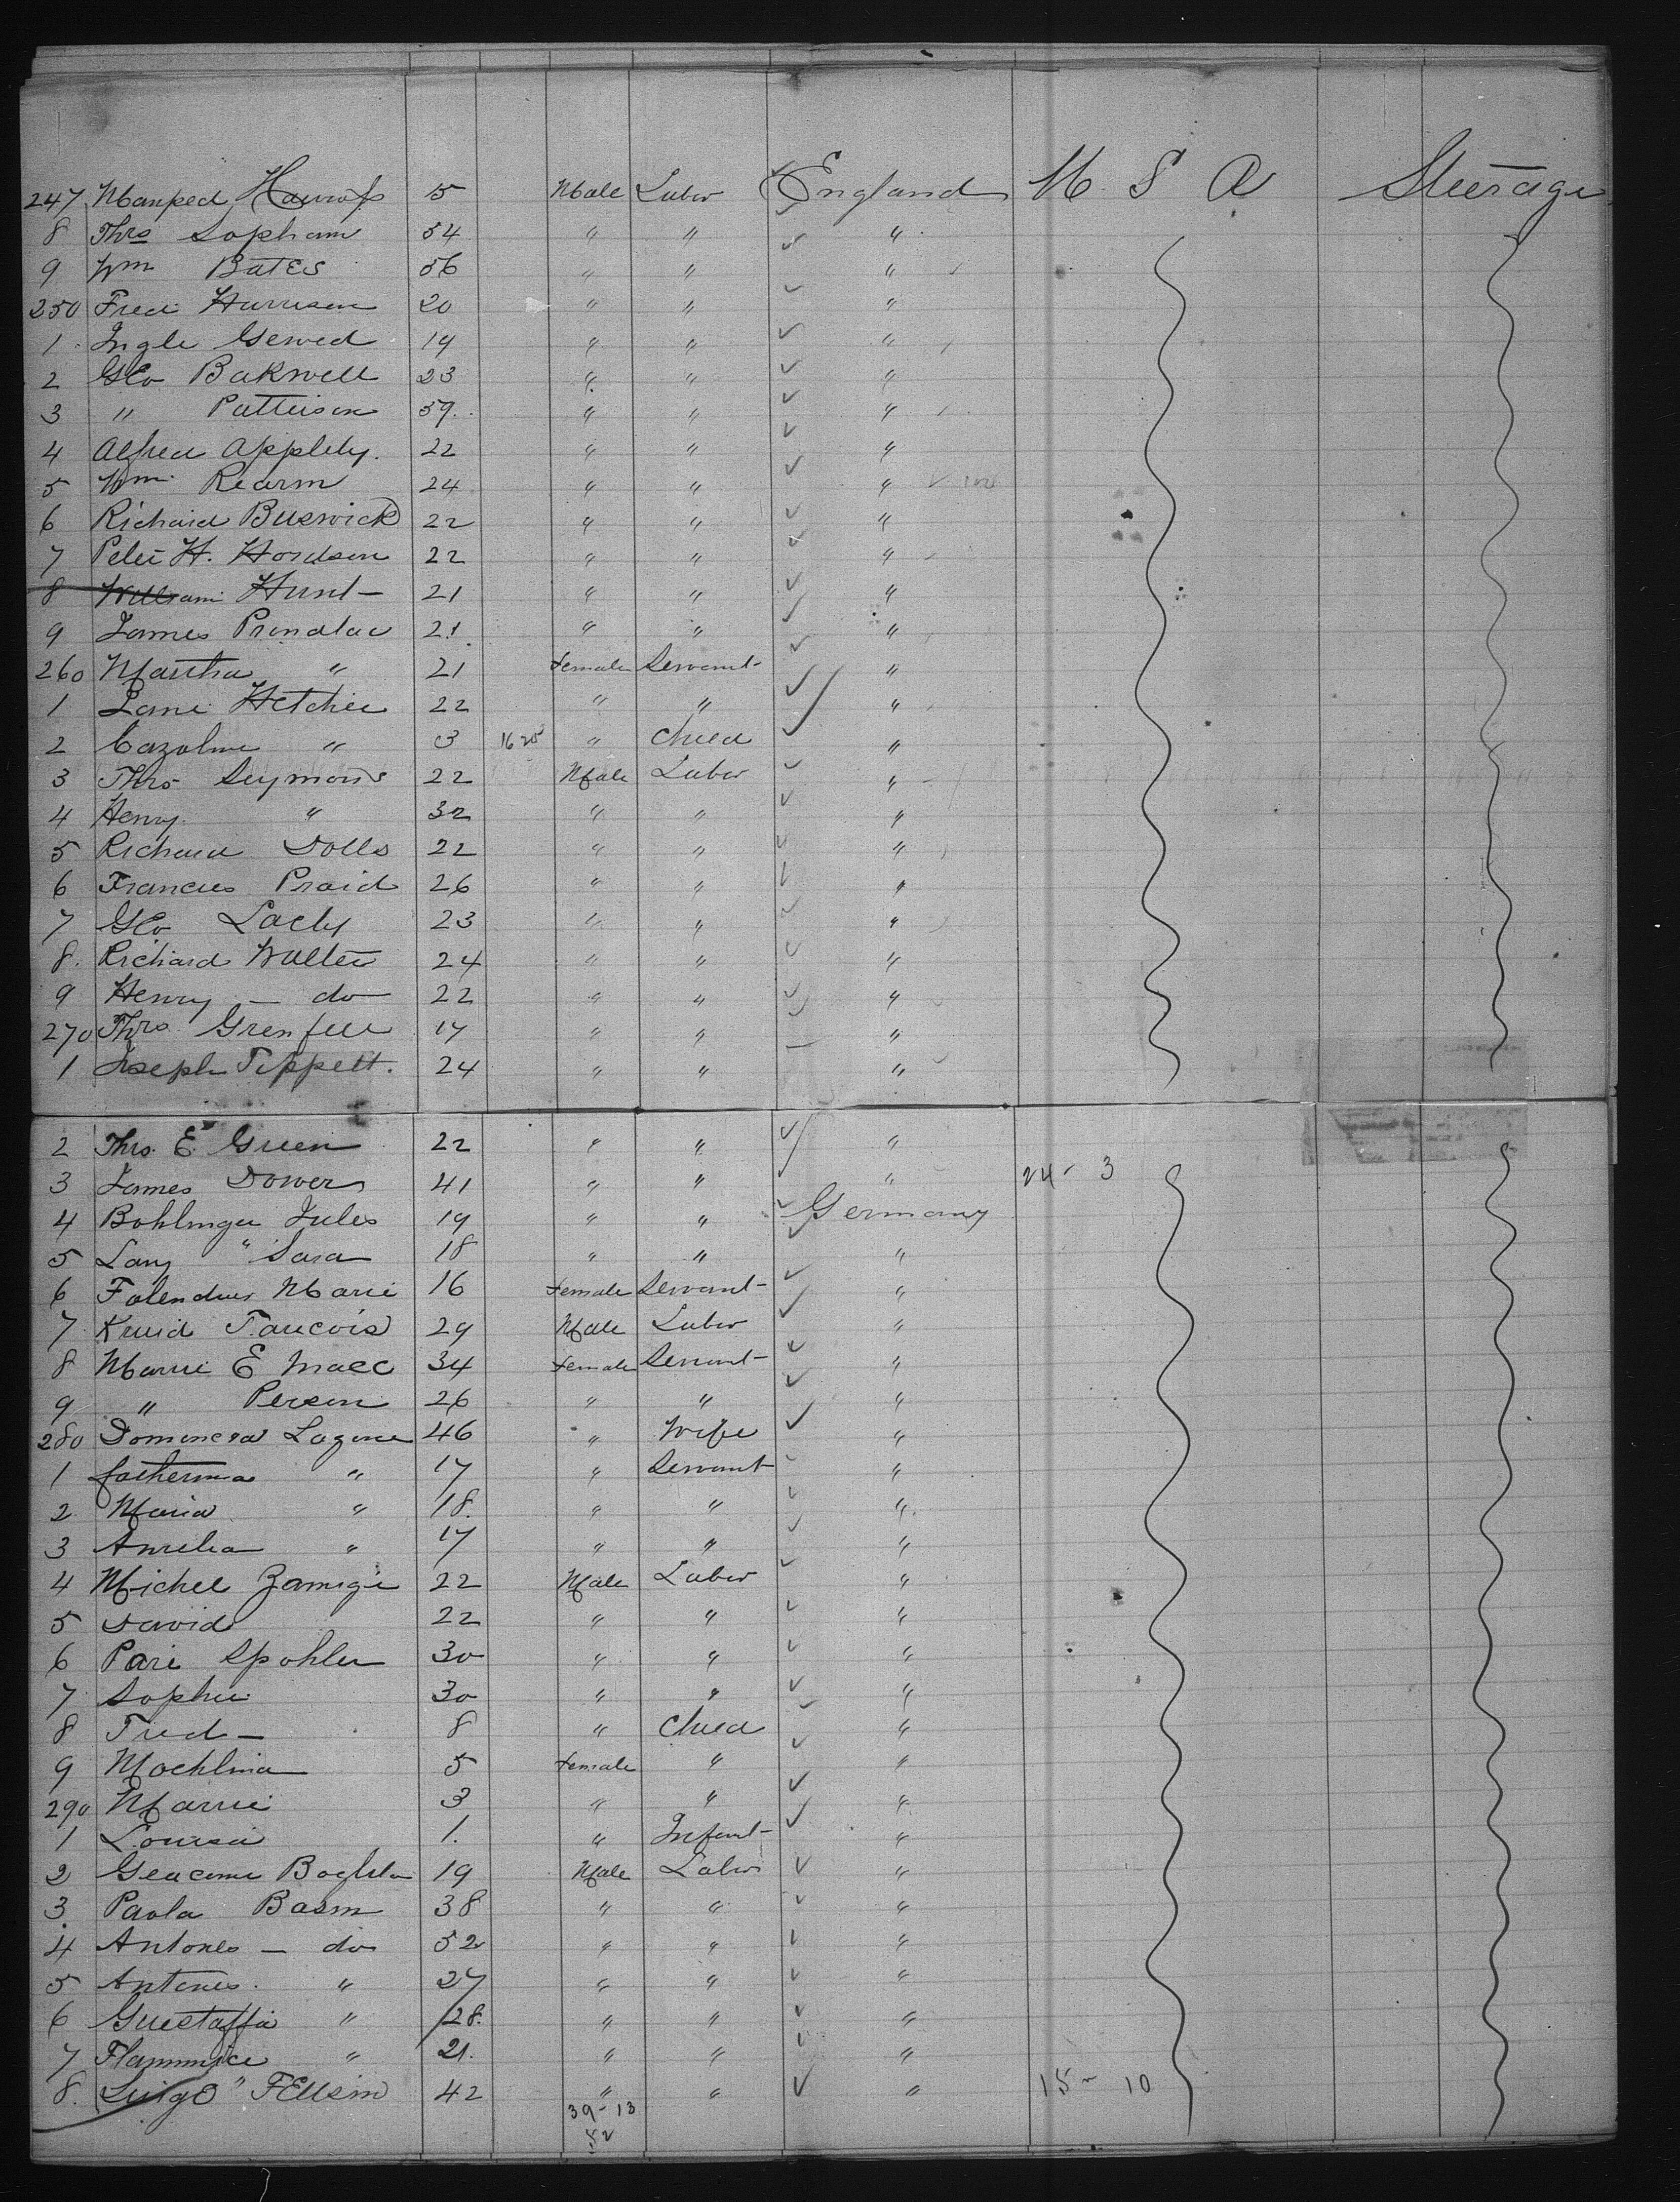 247 Manped Hawraft 15 Male Labor England U S A Steerage
8 Thos Lopham 54 " " "
9 Wm Bates 56 " " "
250 Fred Harrison 20 " " "
1 Ingle Gerved 19 " " "
2 Geo Bakwell 23 " " "
3 " Patterson 59 " " "
4 Alfred Appleby 22 " " "
5 Wm Rearm 24 " " "
6 Richard Buswick 22 " " "
7 Peter H. Hordson 22 " " "
8 William Hunt 21 " " "
9 James Prindlac 21 " " "
260 Martha " 21 Female Servant "
1 Jane 22 " " "
2 " 3 " Child "
3 Thos Seymons 22 Male Labor "
4 Henry " 32 " " "
5 Richard Dolls 22 " " "
6 Francis Praid 26 " " "
7 Geo Lacly 23 " " "
8. Richard Walter 24 " " "
9 Henry - do 22 " " "
270 Thos Grenfell 17 " " "
1 Joseph Tippett. 24 " " "
2 Thos. E. Green 22 " " "
3 James Dower 41 " " " 24 - 3
4 Bohlinger Jules 19 " " Germany
5 Lang " Sara 18 " " "
6 Falendus Marie 16 Female Servant "
7 Kruid Taucois 29 Male Labor "
8 Marie E Maec 34 Female Servant "
9 " Person 26 " " "
280 Lagone 46 " Wife "
1 " 17 " Servant "
2 Maria " 18. " " "
3 Amelia " 17 " " "
4 Michel Zamigi 22 Male Labor "
5 David 22 " " "
6 Pari Spohler 30 " " "
7 Sophie 30 " " "
8 Fred - 8 " Child "
9 Mochlina 5 Female " "
290 Marrie 3 " " "
1 Louisa 1. " Infant "
2 Geacome 19 Male Labor "
3. Paola Basm 38 " " "
4 Antones - do 52 " " "
5 Antones. " 27 " " "
6 Guestaffa " 28. " " "
7 Flammice " 21. " " "
8. Luigo " FEllsim 42 " " " 15 - 10
39 - 13
52